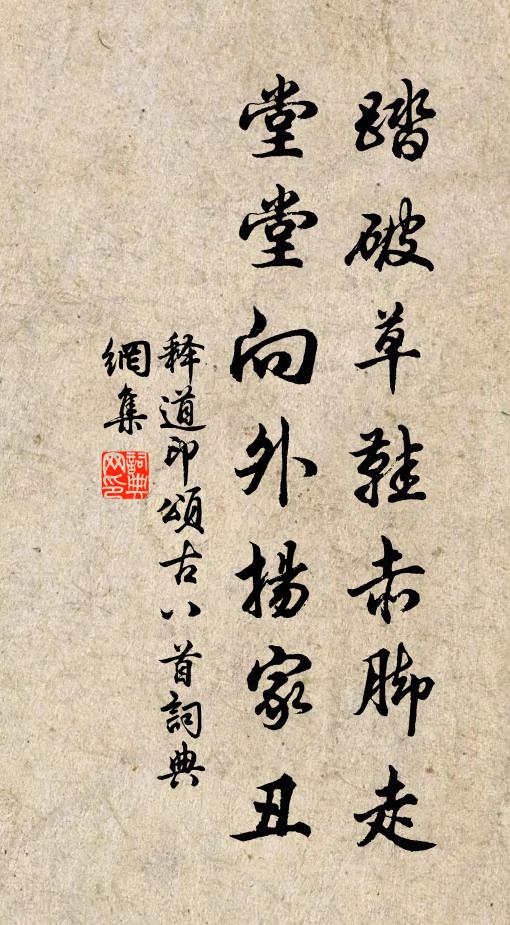 踏破草鞋赤脚走
堂堂向外揚家丑
释道印頌古八首詞典
網集
詞典
网印